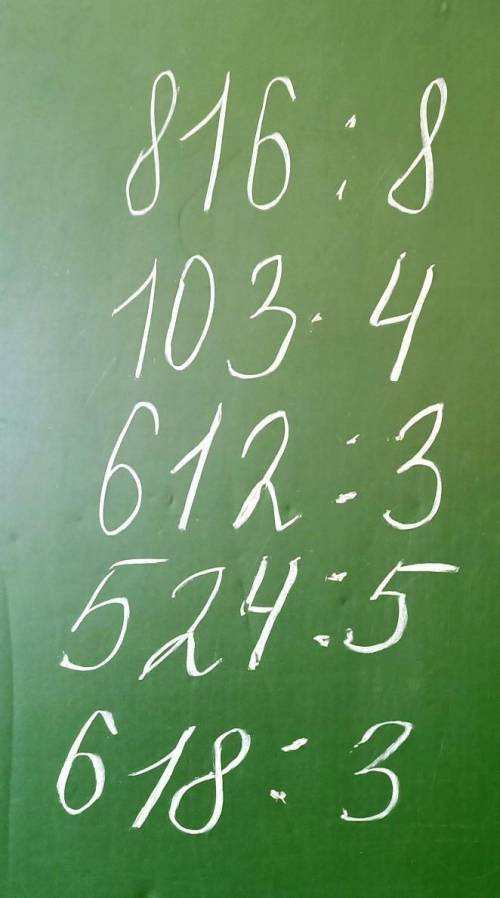 816 : 8
103 · 4
612 : 3
524 : 5
618 : 3